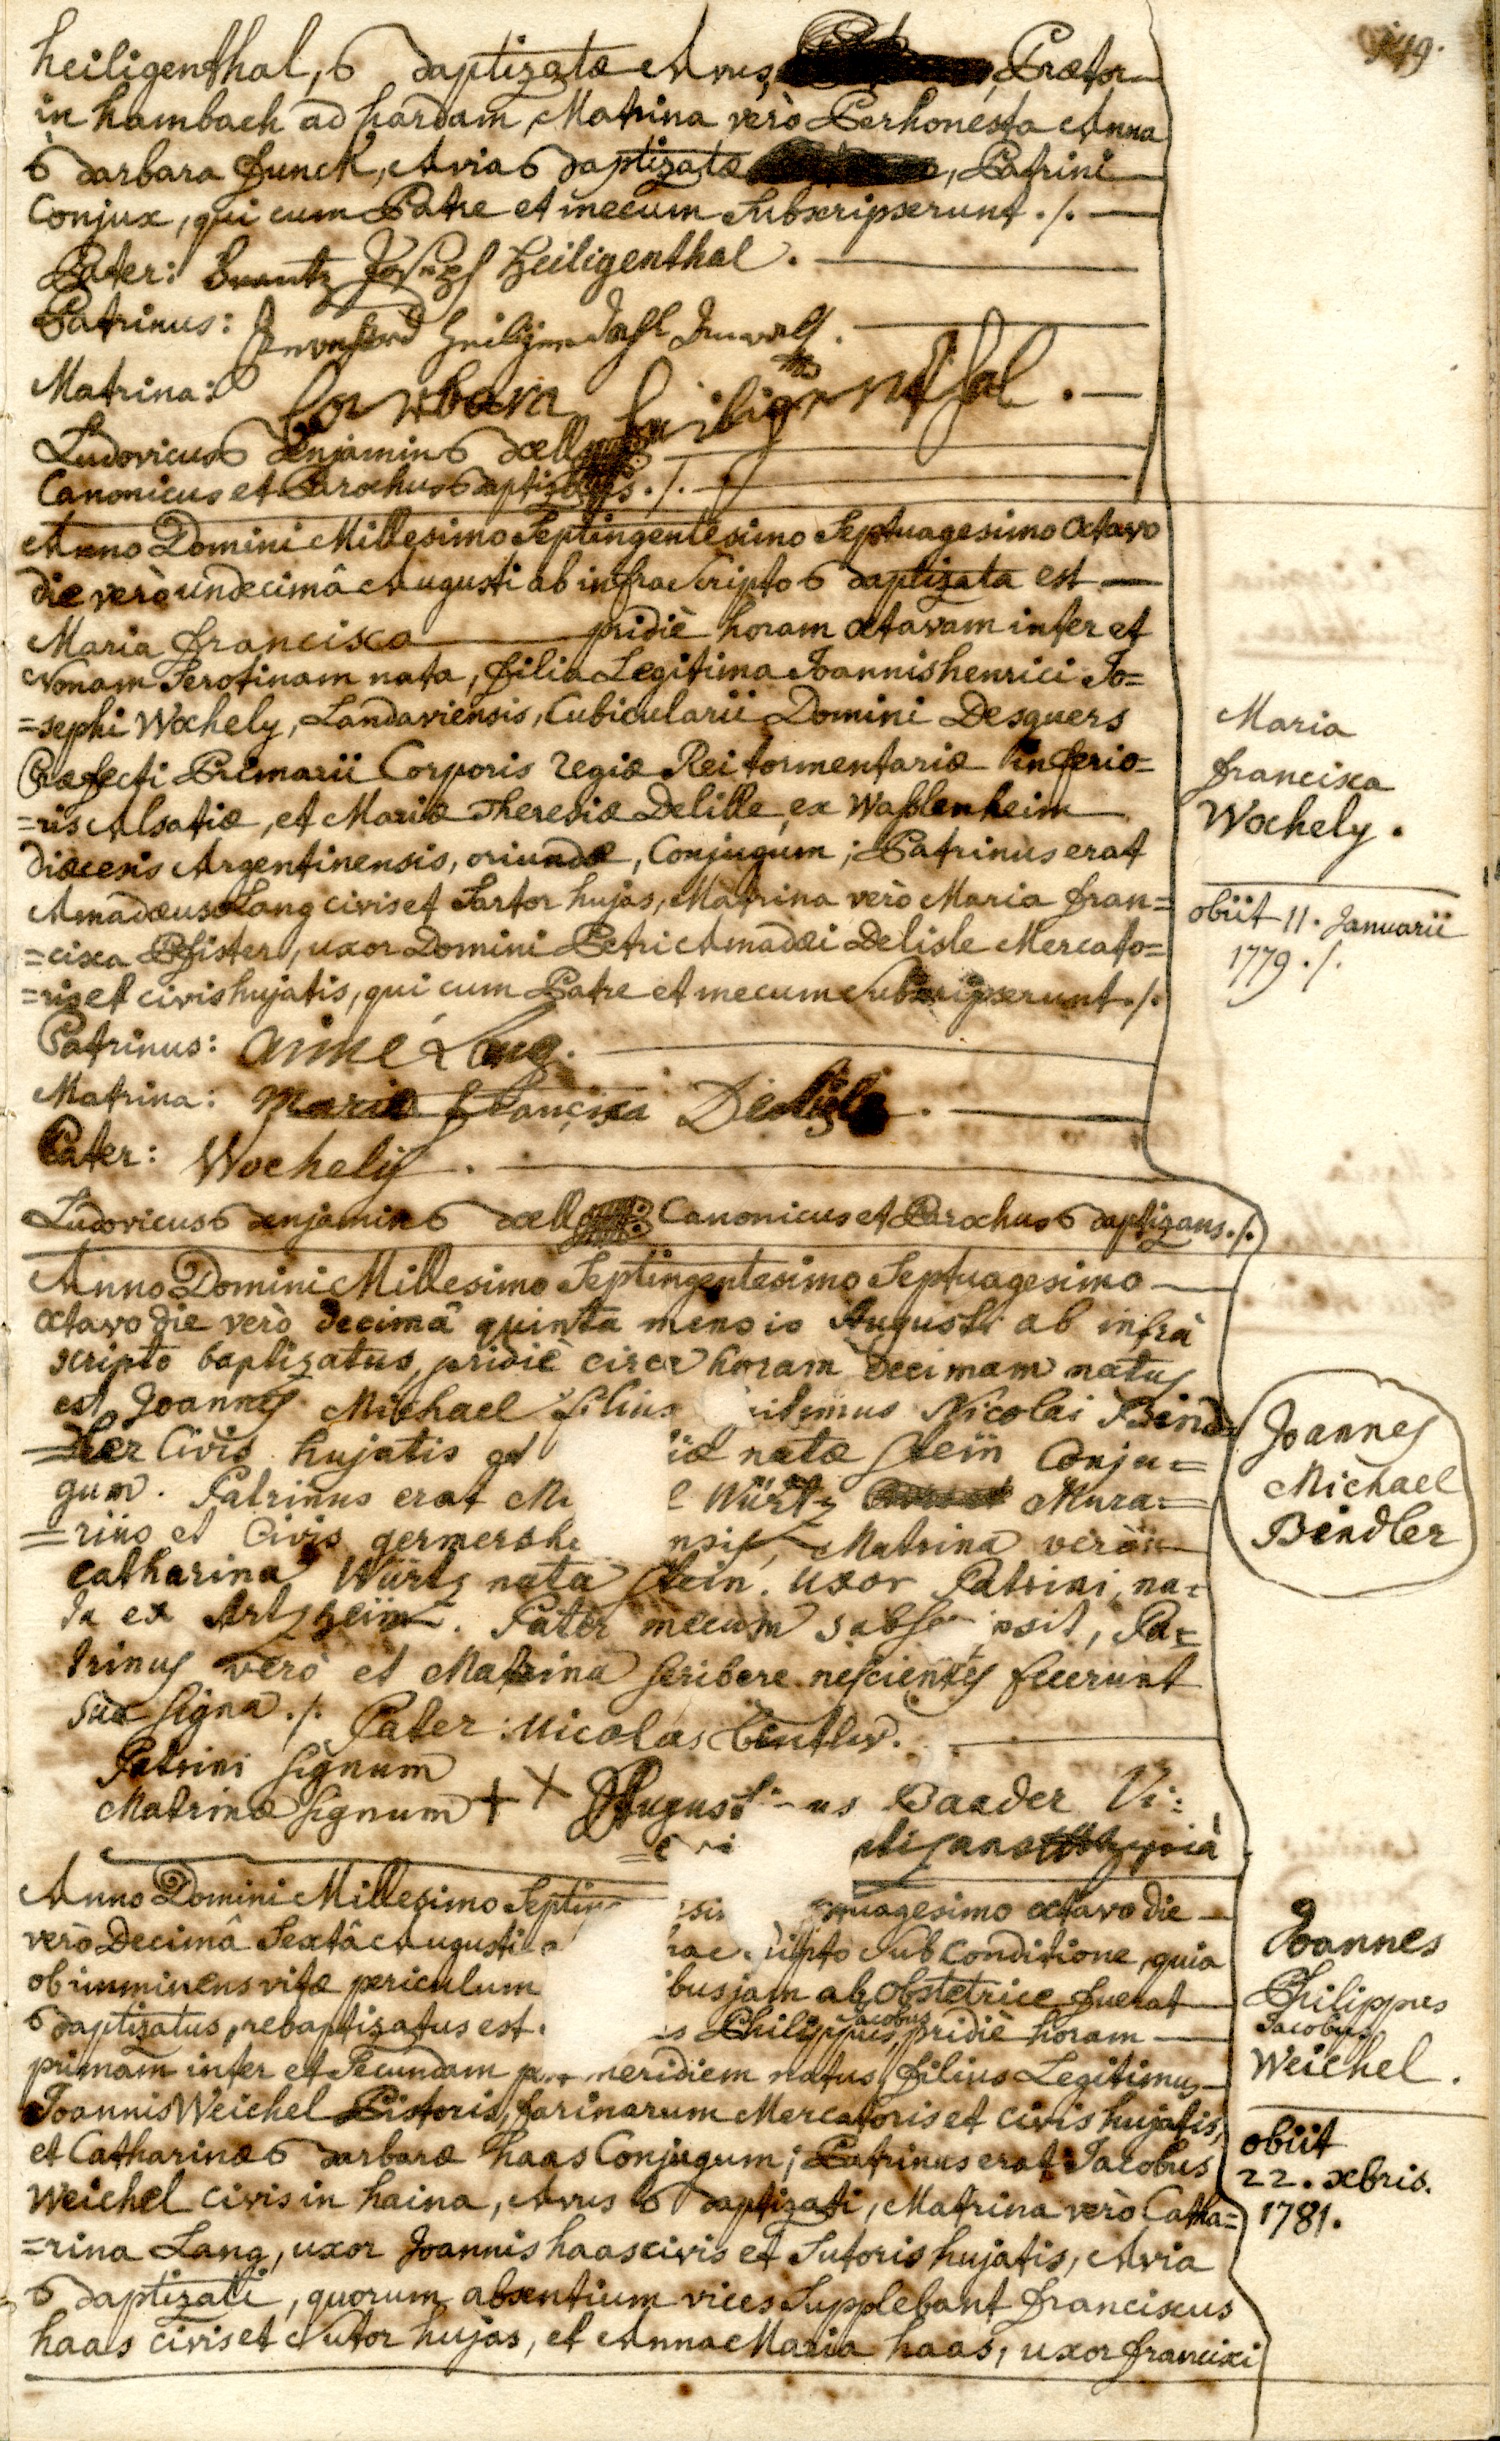 149.
heiligenthal, Baptizatæ Avus, Prætor
in hambach ad hardam, Matrina verò Perhonesta Anna
Barbara Funck, Avia Baptizatæ, Patrini
Conjux, qui cum Patre et mecum Subscripserunt ./.
Pater: Frantz Joseph Heiligenthal.
Patrinus:
Matrina: barbara heiligenthal.
Ludovicus Benjamin Bœll
Canonicus et Parochus Baptizans ./.
Anno Domini Millesimo Septingentesimo Septuagesimo octavo
die verò undecimâ Augusti ab infra Scripto Baptizata est
Maria francisca pridiè horam octavam inter et
Nonam Serotinam nata, filia Legitima Joannis henrici Jo=
=sephi Wochely, Landaviensis, Cubicularii Domini Desquers
Præfecti Primarii Corporis regiæ Rei tormentariæ inferio=
=ris Alsatiæ, et Mariæ Theresiæ Delille ex Wasslenheim
diœcesis Argentinensis, oriundæ, Conjugum; Patrinus erat
Amadæus Lang civis et Sartor hujas, Matrina verò Maria fran=
=cisca Pfister, uxor Domini Petri Amadæi Delisle Mercato=
=ris et civis hujatis, qui cum Patre et mecum Subscripserunt ./.
Maria
francisca
Wochely.
obiit 11. Januarii
1779 ./.
Patrinus: aimé Lang.
Matrina: Maria francisca Delisle.
Pater: Wochely.
Ludovicus Benjamin Bœll Canonicus et Parochus Baptizans ./.
Anno Domini Millesimo Septingentesimo Septuagesimo
octavo die verò decimâ quinta mensis Augusti ab infrà
scripto baptizatus, pridiè circa horam decimam natus
est Joannes Michael filius itimus Nicolai Bind=
=ler Civis hujatis et iæ natæ Stein Conju=
gum. Patrinus erat Mi l Würtz Mura=
=rius et Civis germershe nsis, Matrina verò
Catharina Würtz nata Stein. uxor Patrini, na=
ta ex Artzheim. Pater mecum subsc psit, Pa=
trinus verò et Matrina scribere nescientes fecerunt
sua signa ./. Pater: Nicolas Bentler.
Joannes
Michael
Bindler
Patrini signum +
Matrinæ signum + Augustinus Baader Vi=
=cari tizans
Anno Domini Millesimo Septing esi tuagesimo octavo die
verò Decimâ Sextâ Augusti a rae ripto Sub Conditione, quia
ob imminens vitæ periculum ibus jam ab obstetrice fuerat
Baptizatus, rebaptizatus est s Philippus Jacobus, pridiè horam
primam inter et Secundam meridiem natus, filius Legitimus
Joannis Weichel Pistoris, farinarum Mercatoris et civis hujatis,
et Catharinæ Barbaræ haas Conjugum; Patrinus erat Jacobus
Weichel civis in haina, Avus Baptizati, Matrina verò Catha=
=rina Lang, uxor Joannis haas civis et Sutoris hujatis, Avia
Baptizati, quorum absentium vices Supplebant franciscus
haas civis et Sutor hujas, et Anna Maria haas, uxor francisci
Joannes
Philippus
Jacobus
Weichel.
obiit
22. xbris.
1781.